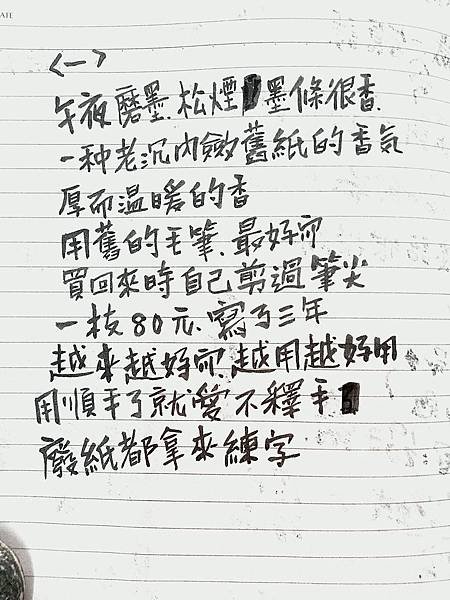 ATE
<一>
午夜磨墨.松煙墨條很香.
一种老沉內斂舊紙的香気
厚而溫暖的香
用舊的毛筆.最好寫
買回來時自己剪過筆尖
一枝80元.寫了三年
越來越好寫.越用越好用
用順手了就愛不釋手
廢紙都拿來練字